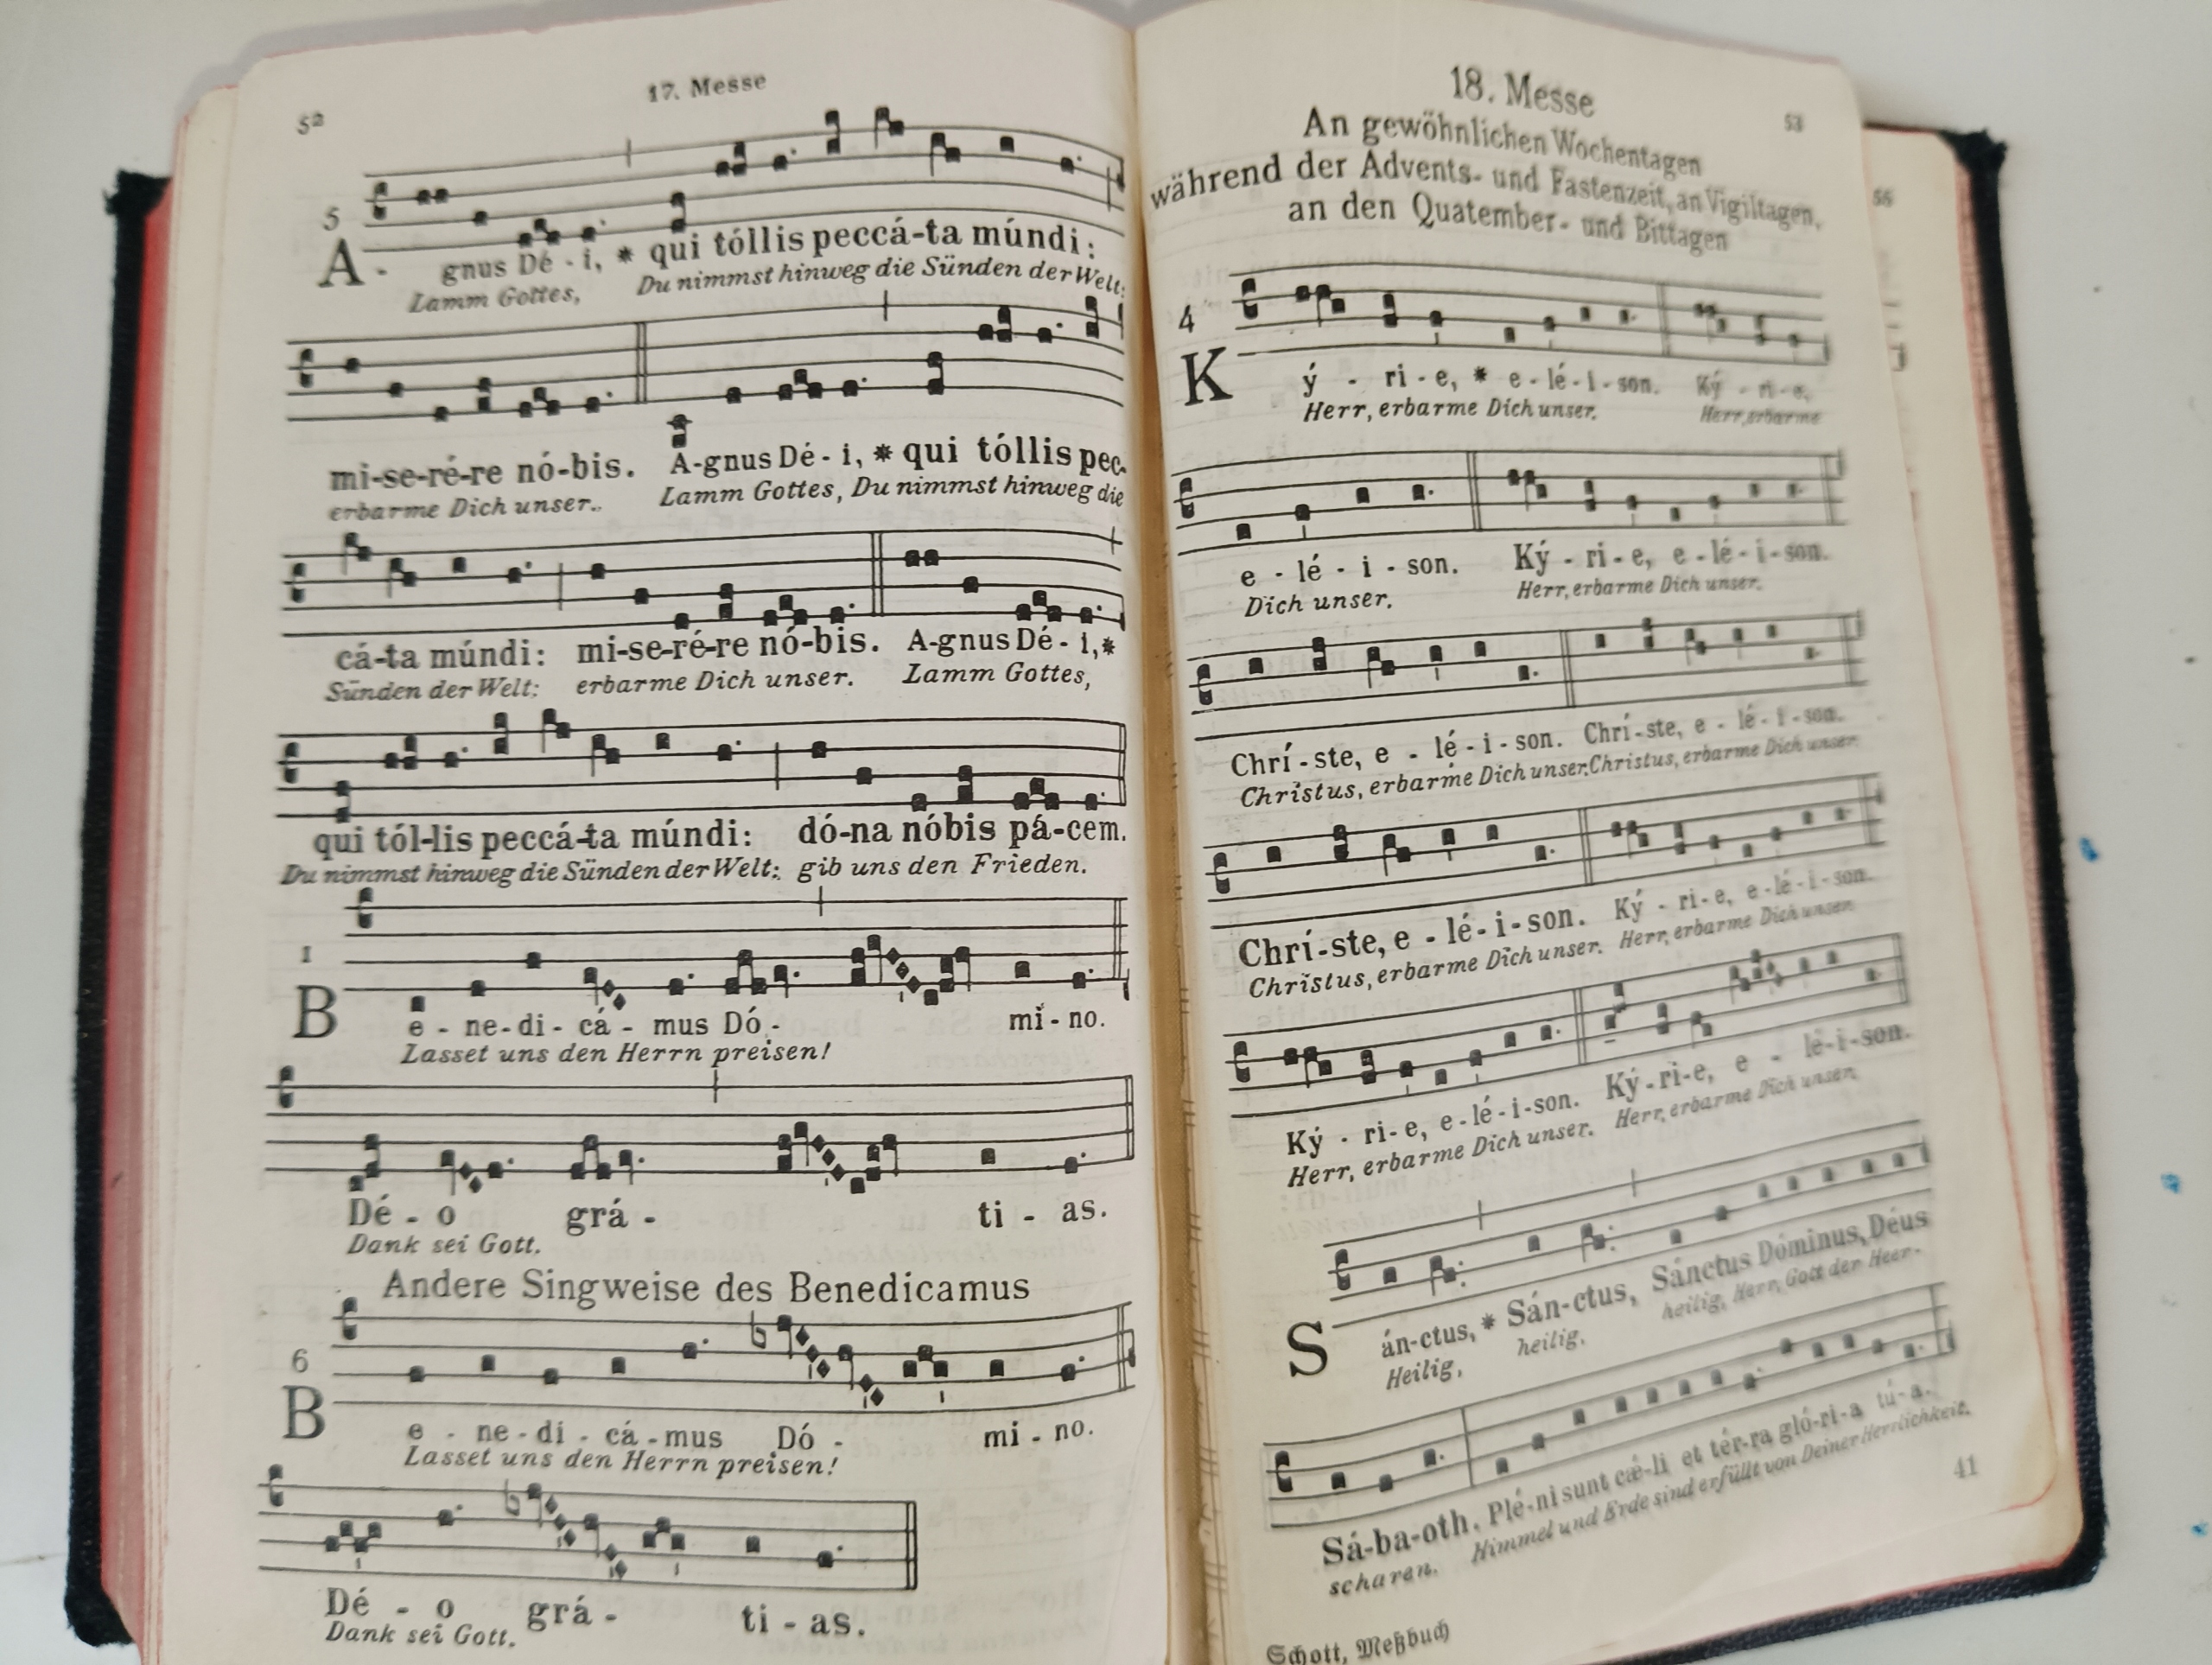 52
17. Messe
5
A - gnus Dé - i, * qui tóllis peccá-ta múndi:
Lamm Gottes, Du nimmst hinweg die Sünden der Welt:
mi-se-ré-re nó-bis. A-gnus Dé - i, * qui tóllis pec-
erbarme Dich unser. Lamm Gottes, Du nimmst hinweg die
cá-ta múndi: mi-se-ré-re nó-bis. A-gnus Dé - i, *
Sünden der Welt: erbarme Dich unser. Lamm Gottes,
qui tól-lis peccá-ta múndi: dó-na nóbis pá-cem.
Du nimmst hinweg die Sünden der Welt: gib uns den Frieden.
1
B e - ne - di - cá - mus Dó - mi - no.
Lasset uns den Herrn preisen!
Dé - o grá - ti - as.
Dank sei Gott.
Andere Singweise des Benedicamus
6
B e - ne - di - cá - mus Dó - mi - no.
Lasset uns den Herrn preisen!
Dé - o grá - ti - as.
Dank sei Gott.
18. Messe
53
An gewöhnlichen Wochentagen
während der Advents- und Fastenzeit, an Vigiltagen,
an den Quatember- und Bittagen
4
K ý - ri - e, * e - lé - i - son. Ký - ri - e,
Herr, erbarme Dich unser. Herr, erbarme
e - lé - i - son. Ký - ri - e, e - lé - i - son.
Dich unser. Herr, erbarme Dich unser.
Chrí - ste, e - lé - i - son. Chrí - ste, e - lé - i - son.
Christus, erbarme Dich unser. Christus, erbarme Dich unser.
Chrí-ste, e - lé - i - son. Ký - ri - e, e - lé - i - son.
Christus, erbarme Dich unser. Herr, erbarme Dich unser.
Ký - ri - e, e - lé - i - son. Ký - ri - e, e - lé - i - son.
Herr, erbarme Dich unser. Herr, erbarme Dich unser.
S án-ctus, * Sán-ctus, Sánctus Dóminus, Déus
Heilig, heilig, heilig, Herr, Gott der Heer-
Sá-ba-oth. Plé-ni sunt cǽ-li et tér-ra gló-ri-a tú-a.
scharen. Himmel und Erde sind erfüllt von Deiner Herrlichkeit.
Schott, Meßbuch
41
55